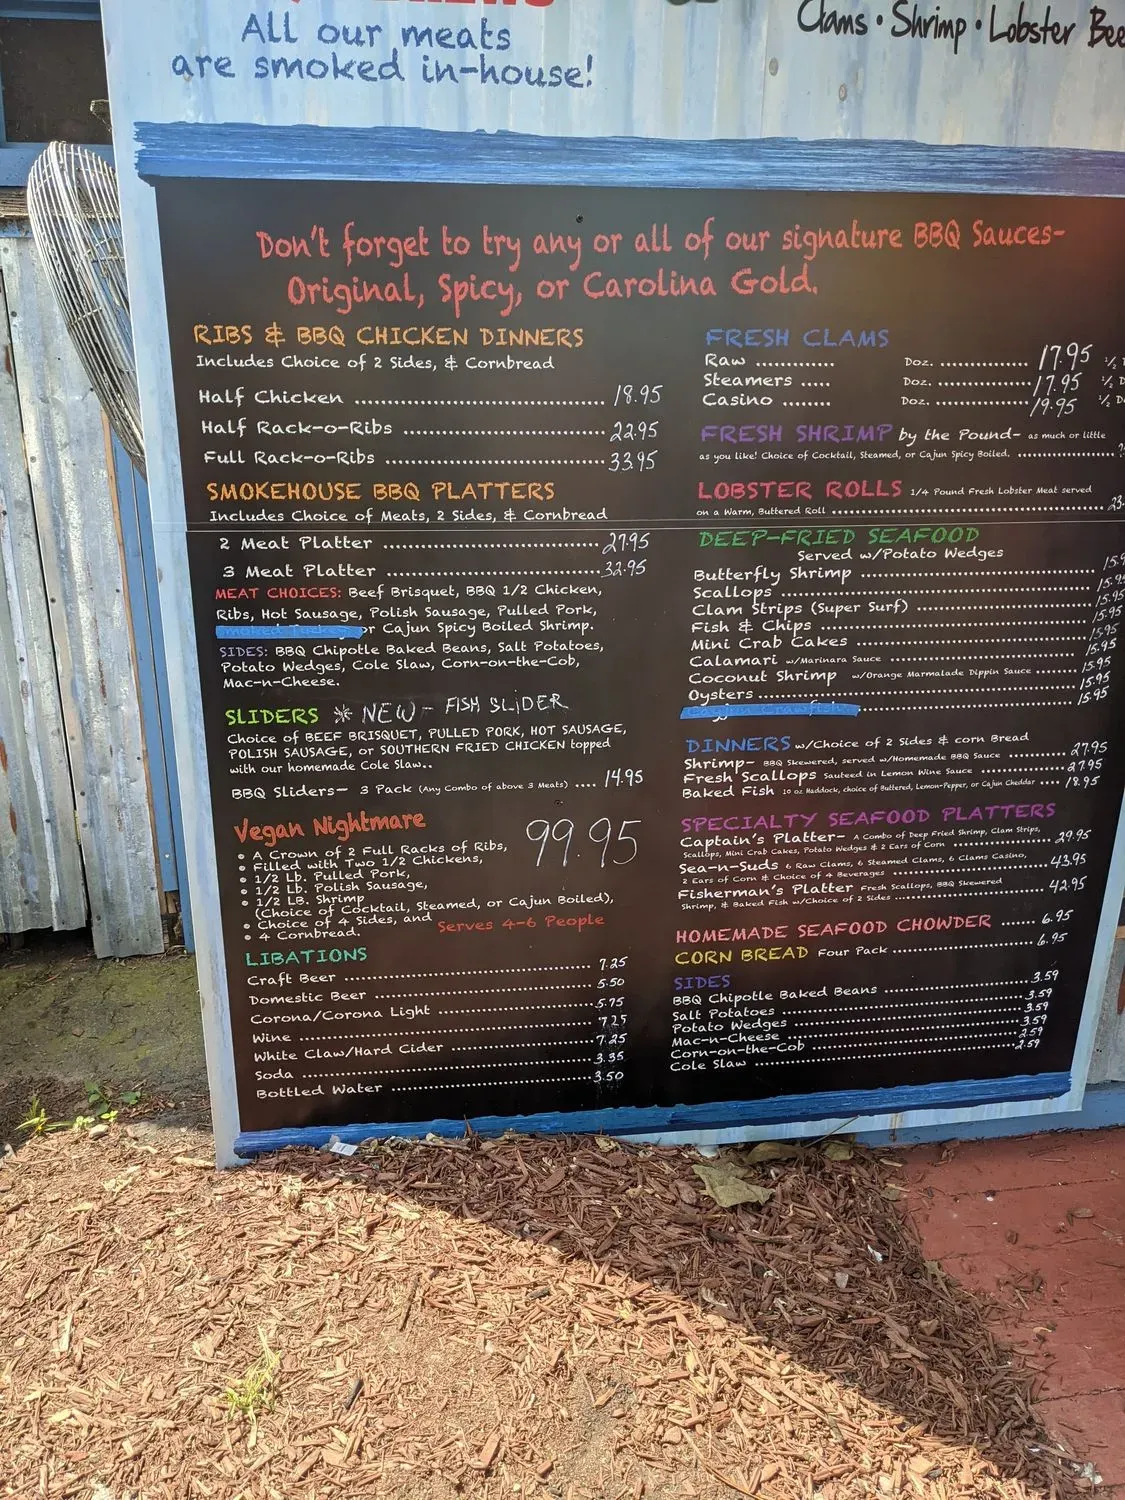 All our meats
are smoked in-house!
Clams • Shrimp • Lobster
Don't forget to try any or all of our signature BBQ Sauces-
Original, Spicy, or Carolina Gold.
RIBS & BBQ CHICKEN DINNERS
Includes Choice of 2 Sides, & Cornbread
Half Chicken 18.95
Half Rack-o-Ribs 22.95
Full Rack-o-Ribs 33.95
SMOKEHOUSE BBQ PLATTERS
Includes Choice of Meats, 2 Sides, & Cornbread
2 Meat Platter 27.95
3 Meat Platter 32.95
MEAT CHOICES: Beef Brisquet, BBQ 1/2 Chicken,
Ribs, Hot Sausage, Polish Sausage, Pulled Pork,
Smoked Turkey or Cajun Spicy Boiled Shrimp.
SIDES: BBQ Chipotle Baked Beans, Salt Potatoes,
Potato Wedges, Cole Slaw, Corn-on-the-Cob,
Mac-n-Cheese.
SLIDERS * NEW - FISH SLIDER
Choice of BEEF BRISQUET, PULLED PORK, HOT SAUSAGE,
POLISH SAUSAGE, or SOUTHERN FRIED CHICKEN topped
with our homemade Cole Slaw..
BBQ Sliders- 3 Pack (Any Combo of above 3 Meats) .... 14.95
Vegan Nightmare 99.95
• A Crown of 2 Full Racks of Ribs,
• Filled with Two 1/2 Chickens,
• 1/2 Lb. Pulled Pork,
• 1/2 Lb. Polish Sausage,
• 1/2 LB. Shrimp
(Choice of Cocktail, Steamed, or Cajun Boiled),
• Choice of 4 Sides, and
• 4 Cornbread. Serves 4-6 People
LIBATIONS
Craft Beer 7.25
Domestic Beer 5.50
Corona/Corona Light 5.75
Wine 7.25
White Claw/Hard Cider 7.25
Soda 3.35
Bottled Water 3.50
FRESH CLAMS
Raw Doz. 17.95 1/2
Steamers Doz. 17.95 1/2
Casino Doz. 19.95 1/2
FRESH SHRIMP by the Pound- as much or little
as you like! Choice of Cocktail, Steamed, or Cajun Spicy Boiled.
LOBSTER ROLLS 1/4 Pound Fresh Lobster Meat served
on a Warm, Buttered Roll
DEEP-FRIED SEAFOOD
Served w/Potato Wedges
Butterfly Shrimp
Scallops 15.95
Clam Strips (Super Surf) 15.95
Fish & Chips 15.95
Mini Crab Cakes 15.95
Calamari w/Marinara Sauce 15.95
Coconut Shrimp w/Orange Marmalade Dippin Sauce 15.95
Oysters 15.95
Cajun Crawfish 15.95
DINNERS w/Choice of 2 Sides & corn Bread
Shrimp- BBQ Skewered, served w/Homemade BBQ Sauce 27.95
Fresh Scallops Sauteed in Lemon Wine Sauce 27.95
Baked Fish 10 oz Haddock, choice of Buttered, Lemon-Pepper, or Cajun Cheddar .... 18.95
SPECIALTY SEAFOOD PLATTERS
Captain's Platter- A Combo of Deep Fried Shrimp, Clam Strips,
Scallops, Mini Crab Cakes, Potato Wedges & 2 Ears of Corn 29.95
Sea-n-Suds 6 Raw Clams, 6 Steamed Clams, 6 Clams Casino,
2 Ears of Corn & Choice of 4 Beverages 43.95
Fisherman's Platter Fresh Scallops, BBQ Skewered
Shrimp, & Baked Fish w/Choice of 2 Sides 42.95
HOMEMADE SEAFOOD CHOWDER 6.95
CORN BREAD Four Pack 6.95
SIDES
BBQ Chipotle Baked Beans 3.59
Salt Potatoes 3.59
Potato Wedges 3.59
Mac-n-Cheese 3.59
Corn-on-the-Cob 2.59
Cole Slaw 2.59